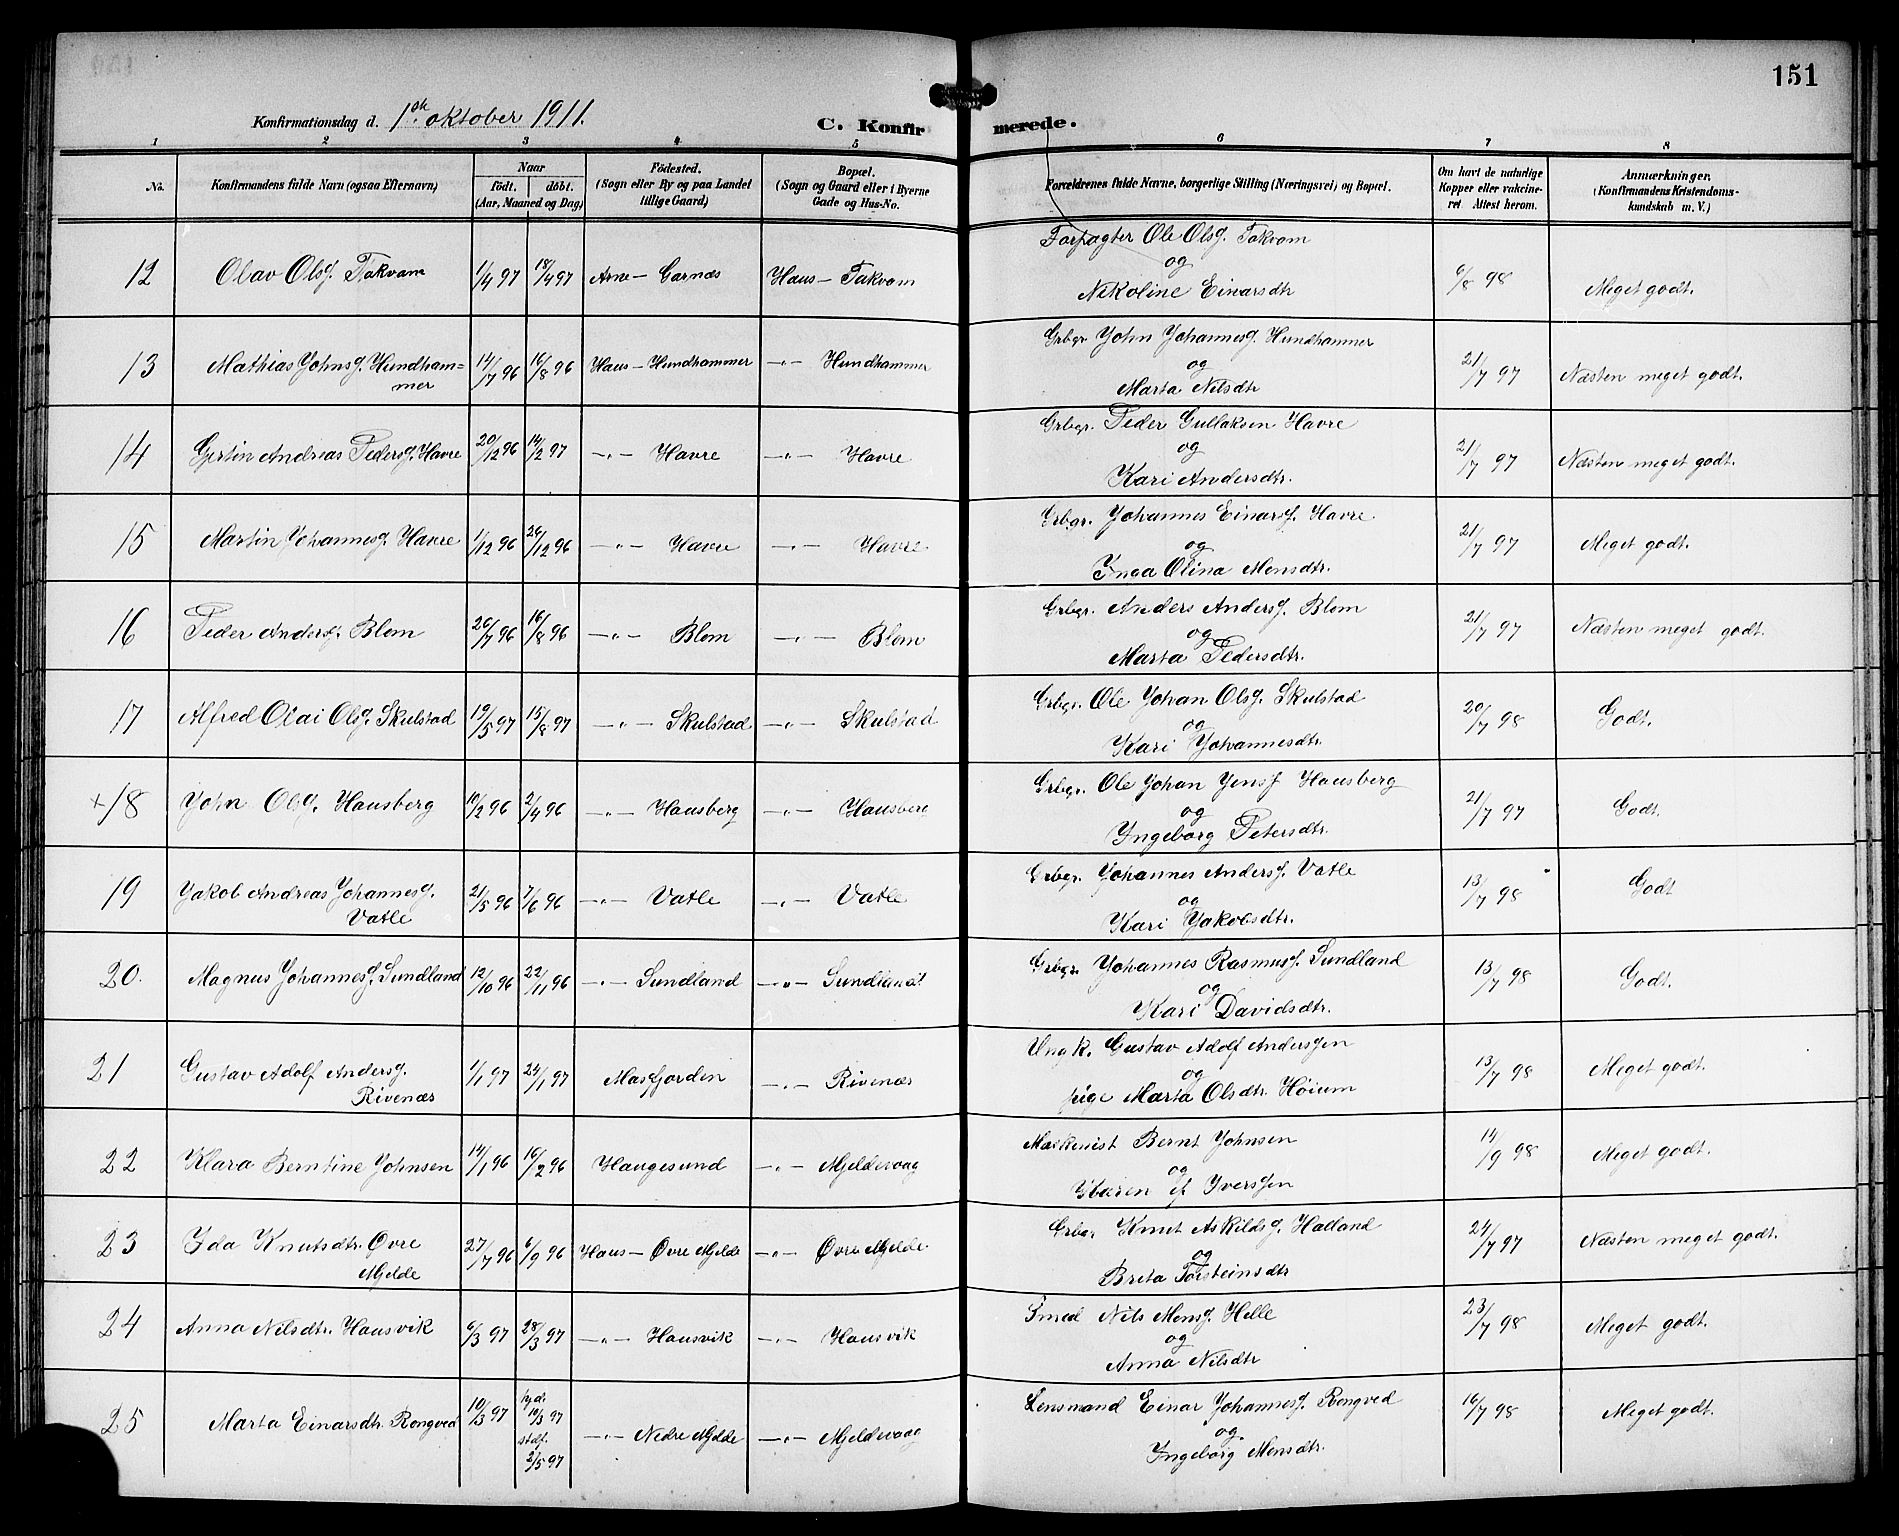 151
Konfirmationsdag d. 1ste oktober 1911.
C. Konfirmerede.
1 2 3 4 5 6 7 8
No. Konfirmandens fulde Navn (ogsaa Efternavn) Naar født. døbt. (Aar, Maaned og Dag) Fødested. (Sogn eller By og paa Landet tillige Gaard) Bopæl. (Sogn og Gaard eller i Byerne Gade og Hus-No. Forældrenes fulde Navne, borgerlige Stilling (Næringsvei) og Bopæl. Om havt de naturlige Kopper eller vakcineret Attest herom. Anmærkninger. (Konfirmandens Kristendomskundskab m. V.)
Forpagter Ole Olsg. Takvam
12 Olav Olsg. Takvam 1/4 97 18/4 97 Arne — Garnæs Haus — Takvam og 6/8 98 Meget godt.
Nikoline Einarsdtr
Grbgr. Yohn Yohannesg. Hundhammer
13 Mathias Yohnsg. Hundham= 14/7 96 16/8 96 Haus — Hundhammer —"— Hundhammer og 21/7 97 Næsten meget godt.
mer Marta Nilsdtr
Grbgr. Peder Gullaksen Havre
14 Gjertin Andreas Pedersg. Havre 20/12 96 14/2 97 —"— Havre —"— Havre og 21/7 97 Næsten meget godt.
Kari Andersdtr.
Grbgr. Yohannes Einarsg. Havre
15 Martin Yohannesg. Havre 1/12 96 26/12 96 —"— Havre —"— Havre og 21/7 97 Meget godt.
Inga Olina Monsdtr.
Grbgr. Anders Andersg. Blom
16 Peder Andersg. Blom 26/7 96 16/8 96 —"— Blom —"— Blom og 21/7 97 Næsten meget godt.
Marta Pedersdtr.
Grbgr. Ole Yohan Olsg. Skulstad
17 Alfred Olai Olsg. Skulstad 19/5 97 15/8 97 —"— Skulstad —"— Skulstad og 20/7 98 Godt.
Kari Yohannesdtr.
Grbgr. Ole Yohan Yensg Hausberg
+18 Yohn Olsg. Hausberg 10/2 96 2/4 96 —"— Hausberg —"— Hausberg og 21/7 97 Godt.
Yngeborg Petersdtr.
Grbgr. Yohannes Andersg. Vatle
19 Yakob Andreas Yohannesg. 21/5 96 7/6 96 —"— Vatle —"— Vatle og 13/7 98 Godt
Vatle Kari Yakobsdtr.
Grbgr. Yohannes Rasmusg. Sundland
20. Magnus Yohannesg. Sundland 12/10 96 22/11 96 —"— Sundland —"— Sundland og 13/7 98 Godt.
Kari Davidsdtr.
Ungk. Gustav Adolf Anderssen
21 Gustav Adolf Andersg. 1/1 97 24/1 97 Masfjorden —"— Rivenæs og 13/7 98 Meget godt.
Rivenæs pige Marta Olsdtr. Høium
Maskinist Bernt Yohnsen
22 Klara Berntine Yohnsen 14/1 96 16/2 96 Haugesund —"— Mjeldevaag og 14/9 98 Meget godt.
Karen Yverssen
Grbgr Knut Askildsg. Halland
23 Ida Knutsdtr. Øvre 27/7 96 6/9 96 Haus — Øvre Mjelde —"— Øvre Mjelde og 24/7 97 Næsten meget godt.
Mjelde Brita Torsteinsdtr
Smed Nils Monsg. Helle
24 Anna Nilsdtr. Hausvik 6/3 97 28/3 97 —"— Hausvik —"— Hausvik og 23/7 98 Meget godt.
Anna Nilsdtr
Lensmand Einar Yohannesg. Rongved
25 Marta Einarsdtr Rongved 10/3 97 hjd. 10/3 97 stdf. 2/5 97 —"— Nedre Mjelde —"— Mjeldevaag og 16/7 98 Meget godt.
Yngeborg Monsdtr.